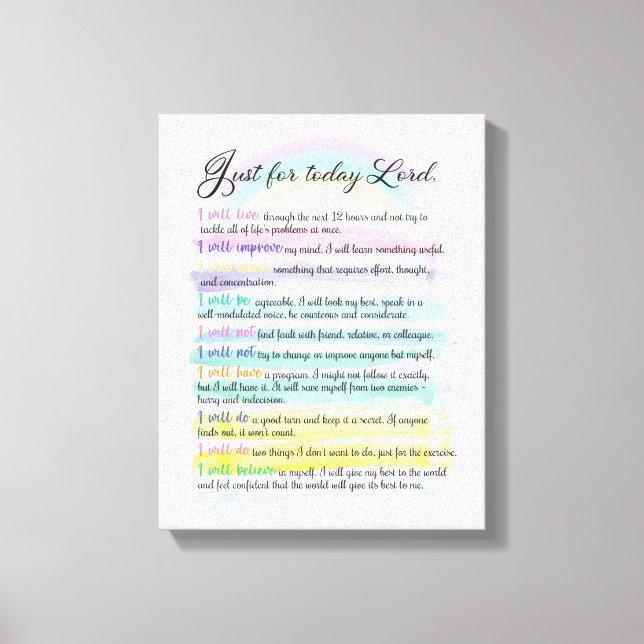 Just for today Lord,
I will live through the next 12 hours and not try to
tackle all of life's problems at once.
I will improve my mind. I will learn something useful.
I will something that requires effort, thought,
and concentration.
I will be agreeable. I will look my best, speak in a
well-modulated voice, be courteous and considerate.
I will not find fault with friend, relative, or colleague.
I will not try to change or improve anyone but myself.
I will have a program. I might not follow it exactly,
but I will have it. It will save myself from two enemies -
hurry and indecision.
I will do a good turn and keep it a secret. If anyone
finds out, it won't count.
I will do two things I don't want to do, just for the exercise.
I will believe in myself. I will give my best to the world
and feel confident that the world will give its best to me.